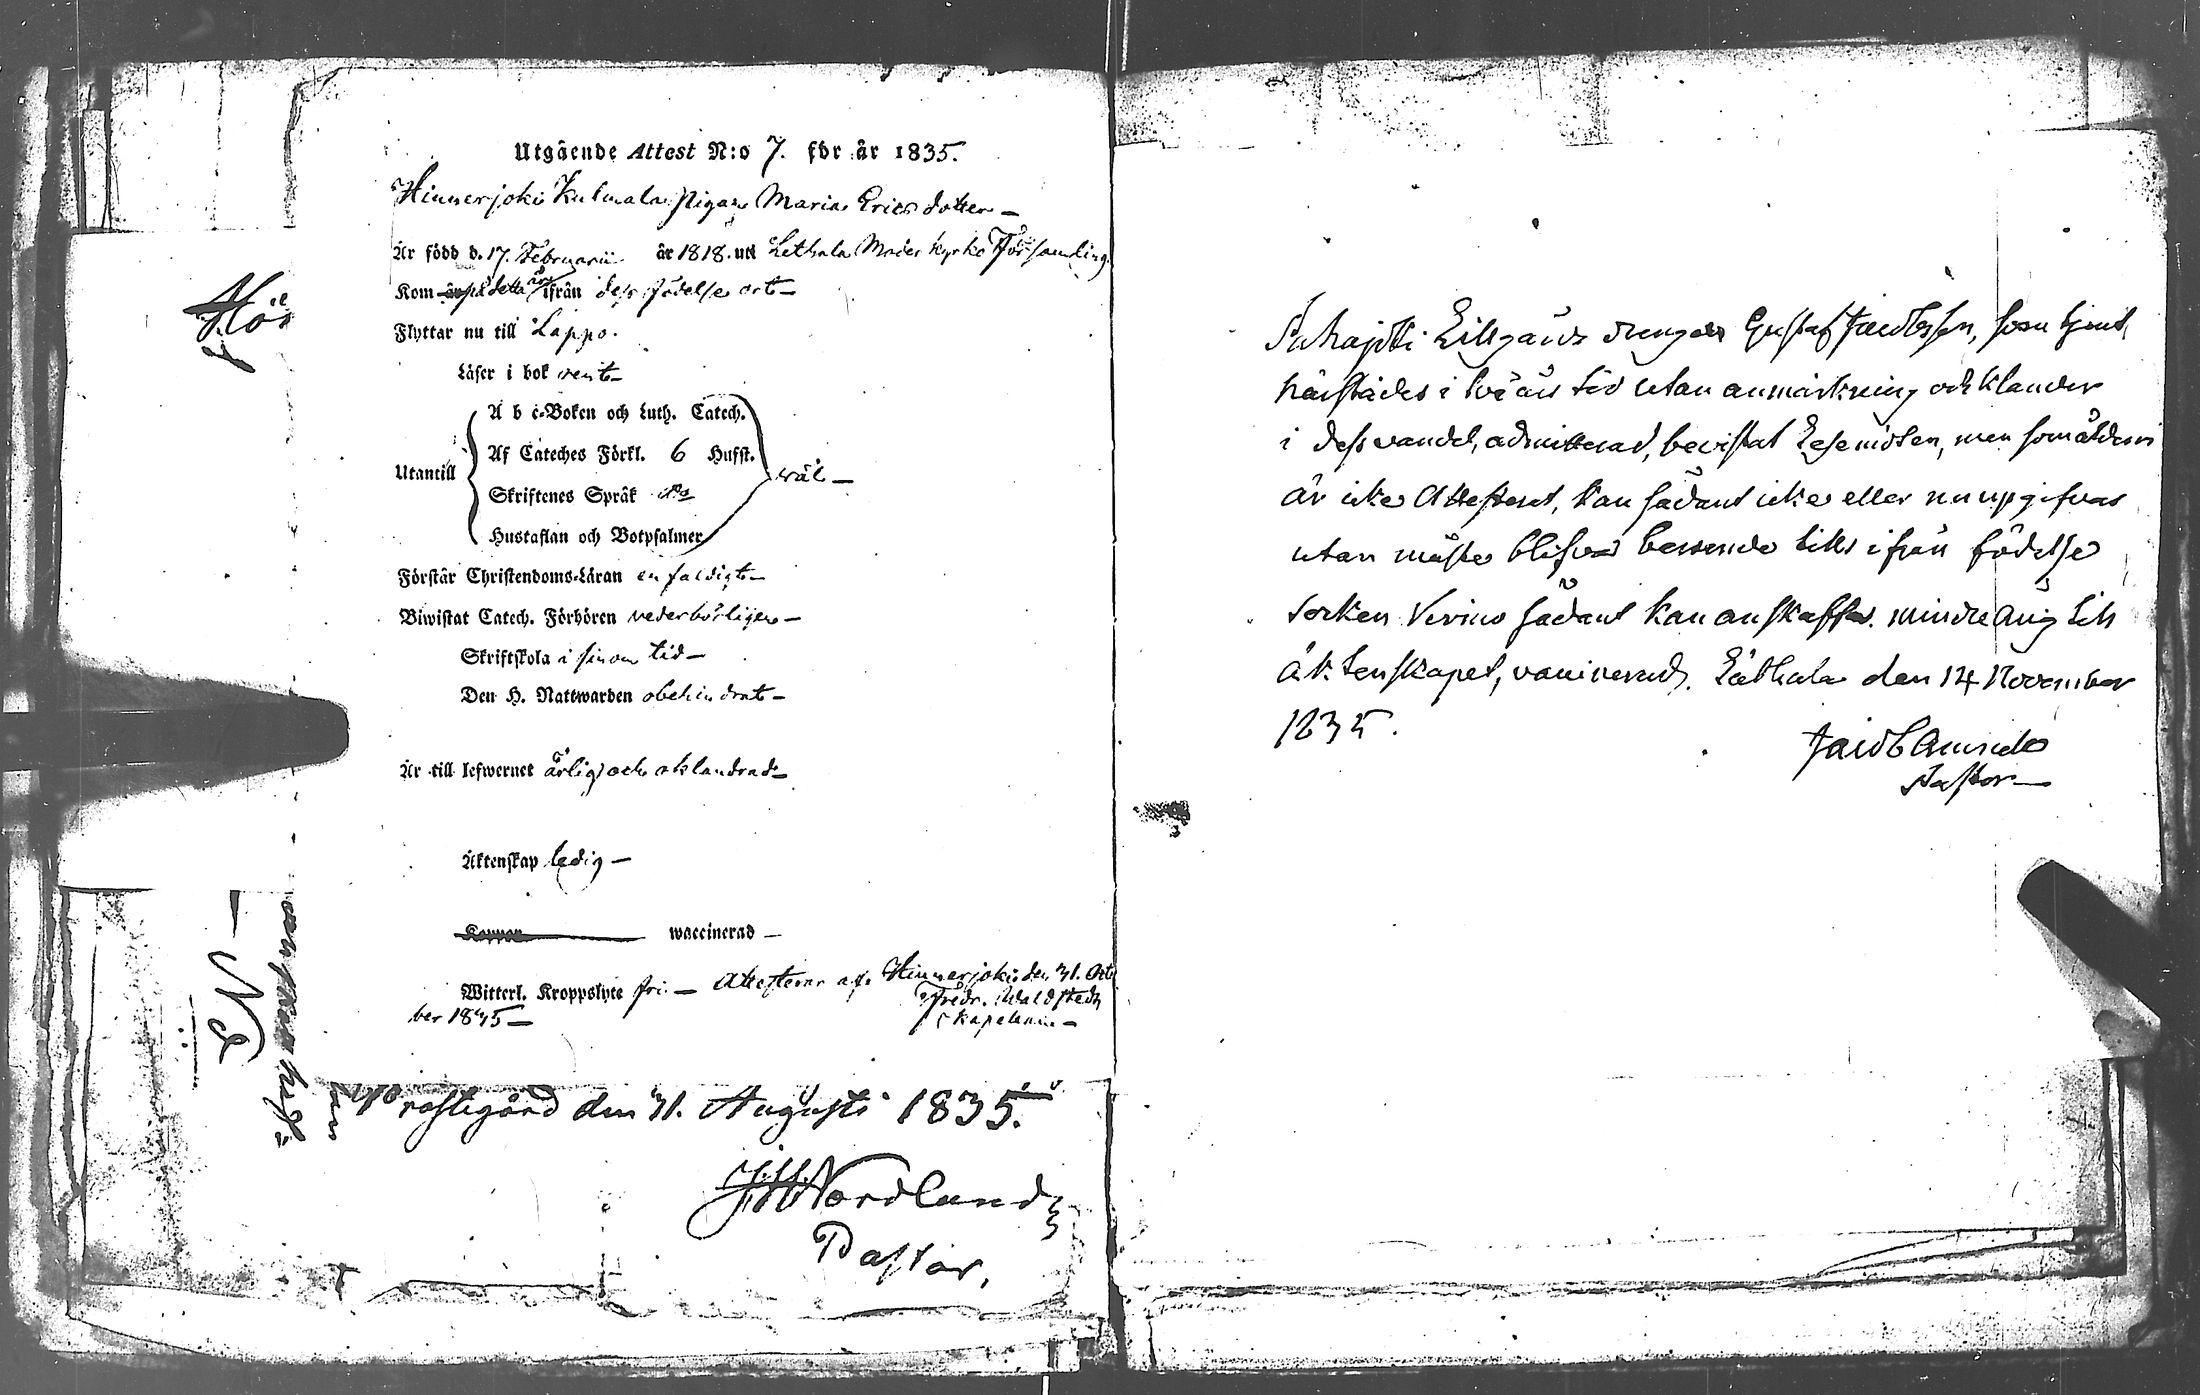 Utgående Attest N:o 7. för år 1835.
Hinnerjoki Kulmala pigan Maria Ericsdotter —
Är född d. 17. Februarii år 1818. uti Lethala Moder kyrko Församling.
Kom år på detta år ifrån dess födelse ort —
Flyttar nu till Lappo.
Läser i bok rent —
A b c-Boken och Luth. Catech.
Af Cateches Förkl. 6 Hufst.
Utantill wäl —
Skriftenes Språk d:o
Hustaflan och Botpsalmer
Förstår Christendoms-Läran enfaldigt —
Biwistat Catech. Förhören vederbörligen —
Skriftskola i sinom tid —
Den H. Nattwarden obehindrat —
Är till lefwernet ärlig och oklandrad —
Äktenskap ledig —
Koppor waccinerad —
Witterl. Kroppslyte fri. — Attesterar af Hinnerjoki den 31. Octo
ber 1835 — Fredr. Waldstedt
Kapellan —
Prostegård den 31. Augusti 1835.
Nordlund
Pastor,
Lillgåns drängen Gustaf Jacobsson, som tjent
härstädes i två års tid utan anmärkning och klander
i dess vandel, admitterad, bevistat Läsemöten, men som åldern
är icke Attesterat, kan sådant icke eller nu upgifvas
utan måste blifva beroende tills ifrån födelse
socken Virmo sådant kan anskaffas. mindreårig till
äktenskapet, vaccinerad. Läthala den 14 November
1835.
Jacob
Pastor —